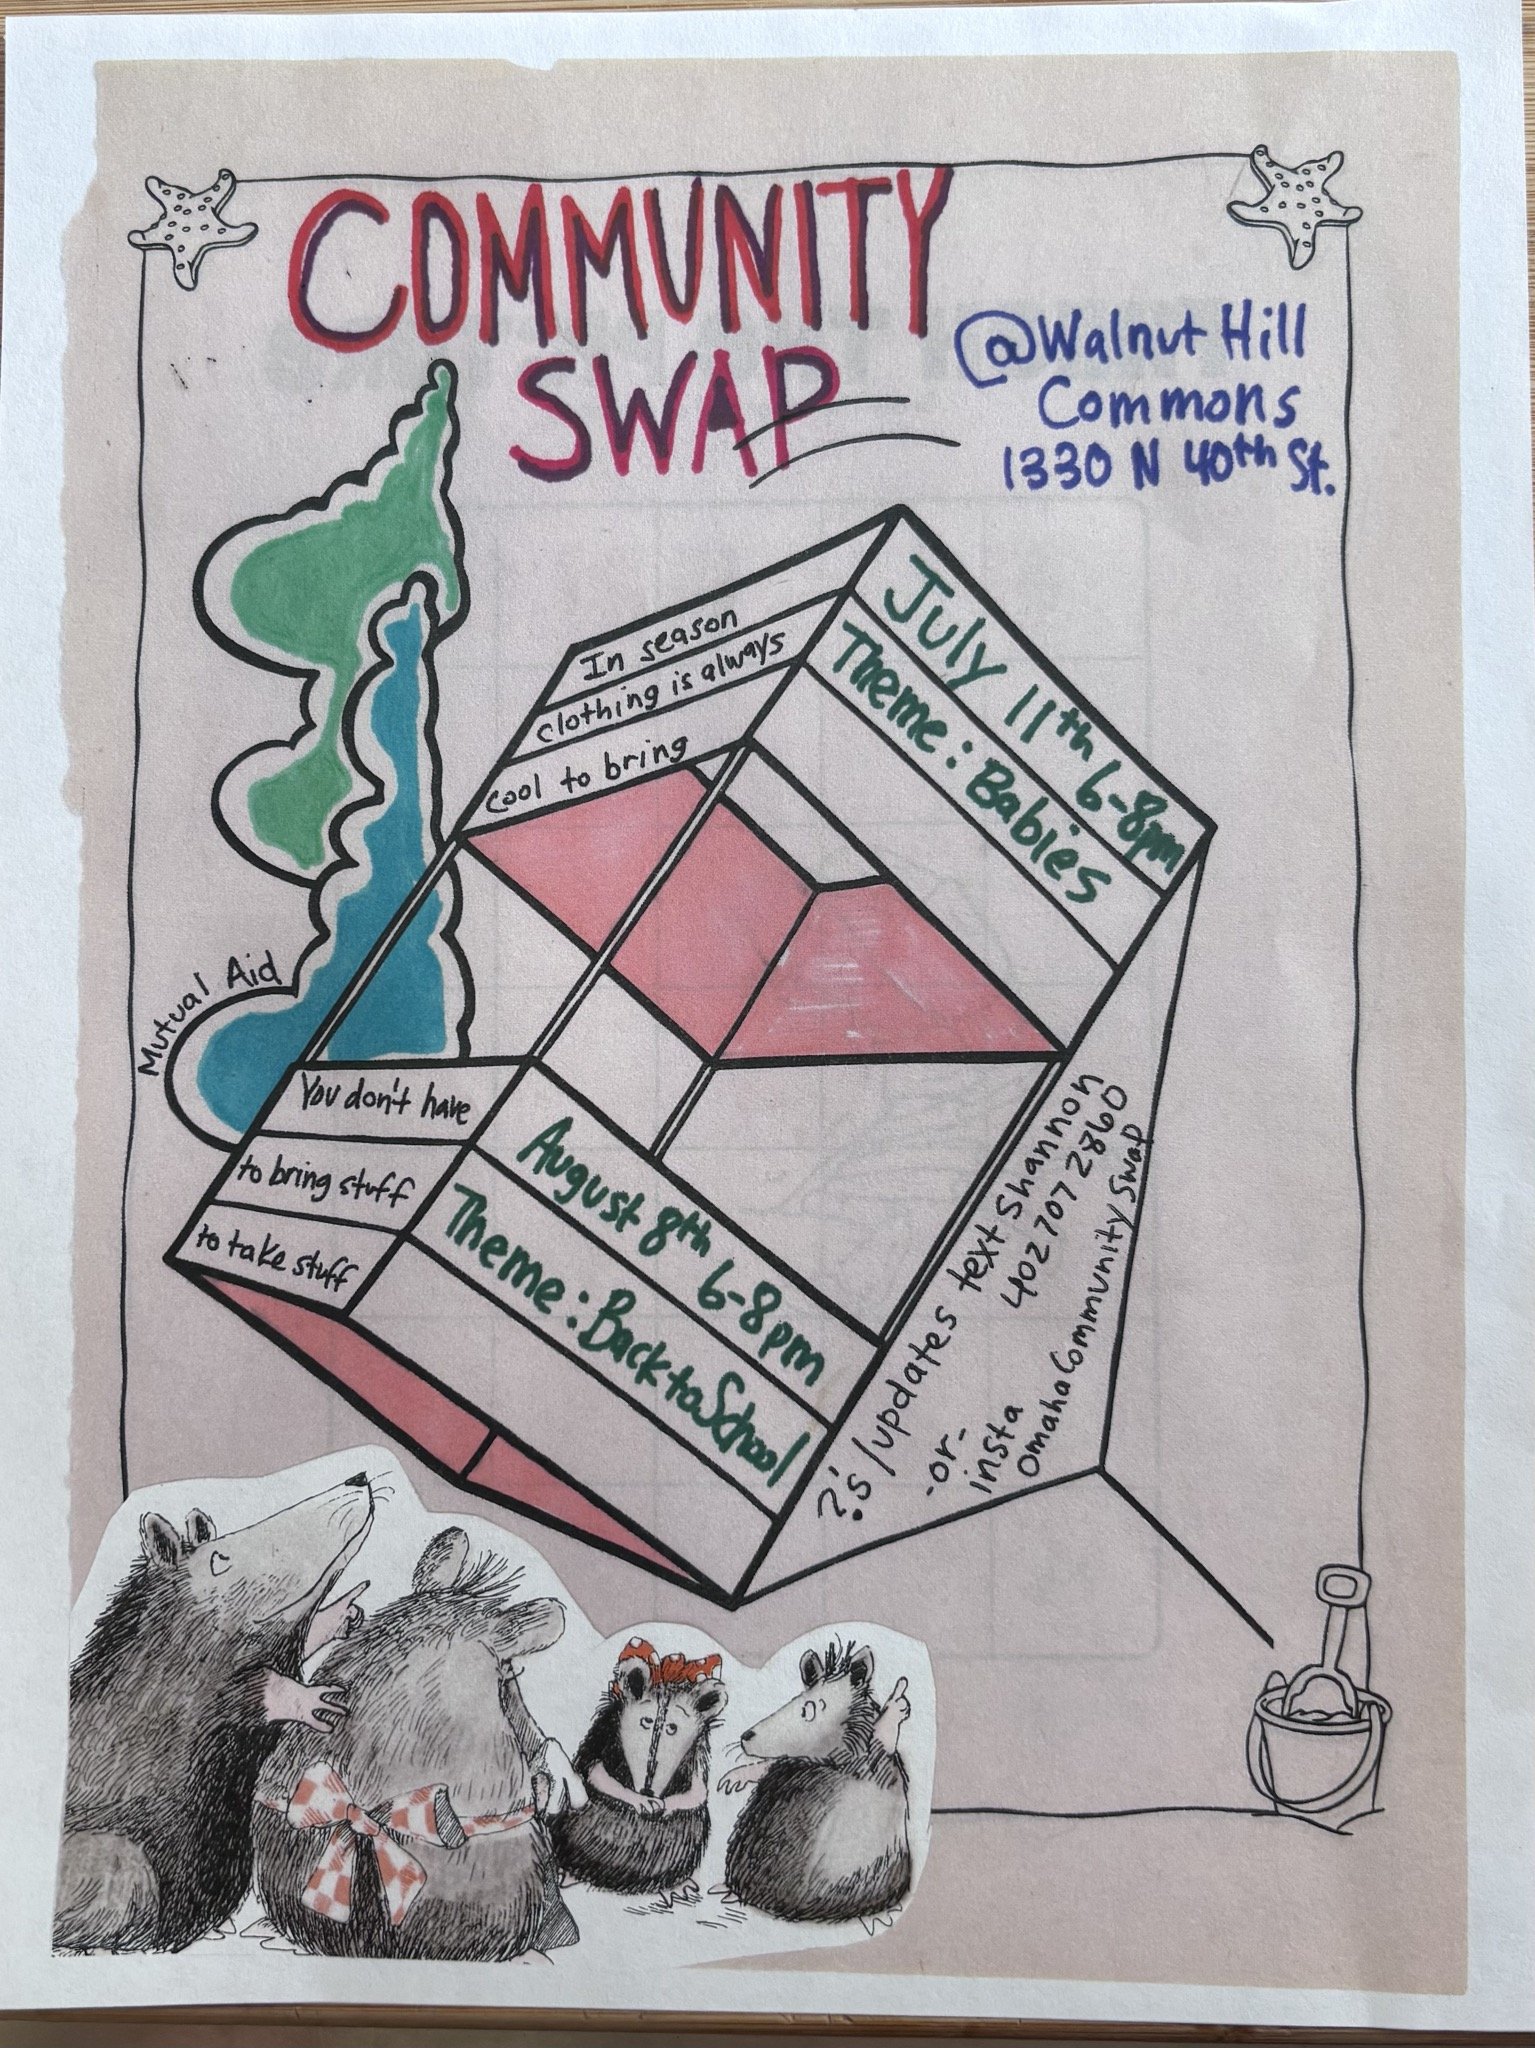 COMMUNITY
SWAP
@Walnut Hill
Commons
1330 N 40th St.
In season
clothing is always
cool to bring
July 11th 6-8pm
Theme: Babies
Mutual Aid
You don't have
to bring stuff
to take stuff
August 8th 6-8pm
Theme: Back to School
?'s/updates text Shannon
402 707 2860
-or-
insta
OmahaCommunitySwap